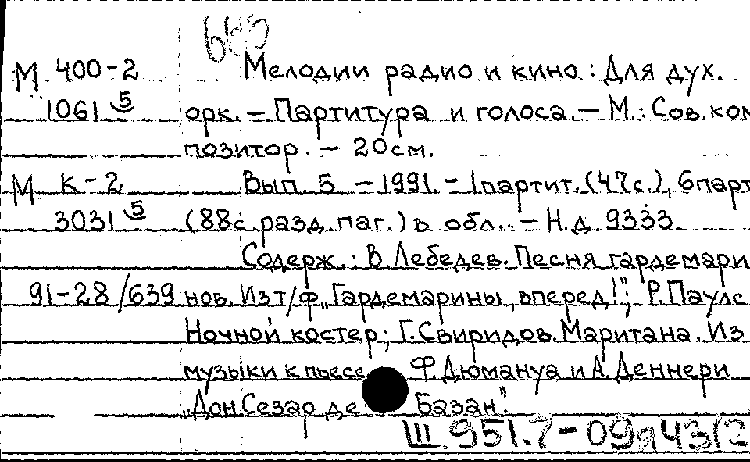 М 400-2 Мелодии радио и кино: Для дух.
1061 5 орк. – Партитура и голоса. – М.: Сов. ком
позитор. – 20см.
М К-2 Вып. 5 – 1991. – 1партит. (47с.), 6парт
3031 5 (88с. разд. паг.) в обл. – Н.д. 9333.
Содерж.: В. Лебедев. Песня гардемари
91-28/639 нов. Из т/ф „Гардемарины, вперед!"; Р. Паулс
Ночной костер; Г. Свиридов. Маритана. Из
музыки к пьесе Ф. Дюмануа и А. Деннери
„Дон Сезар де Базан".
Ш.951.7-09